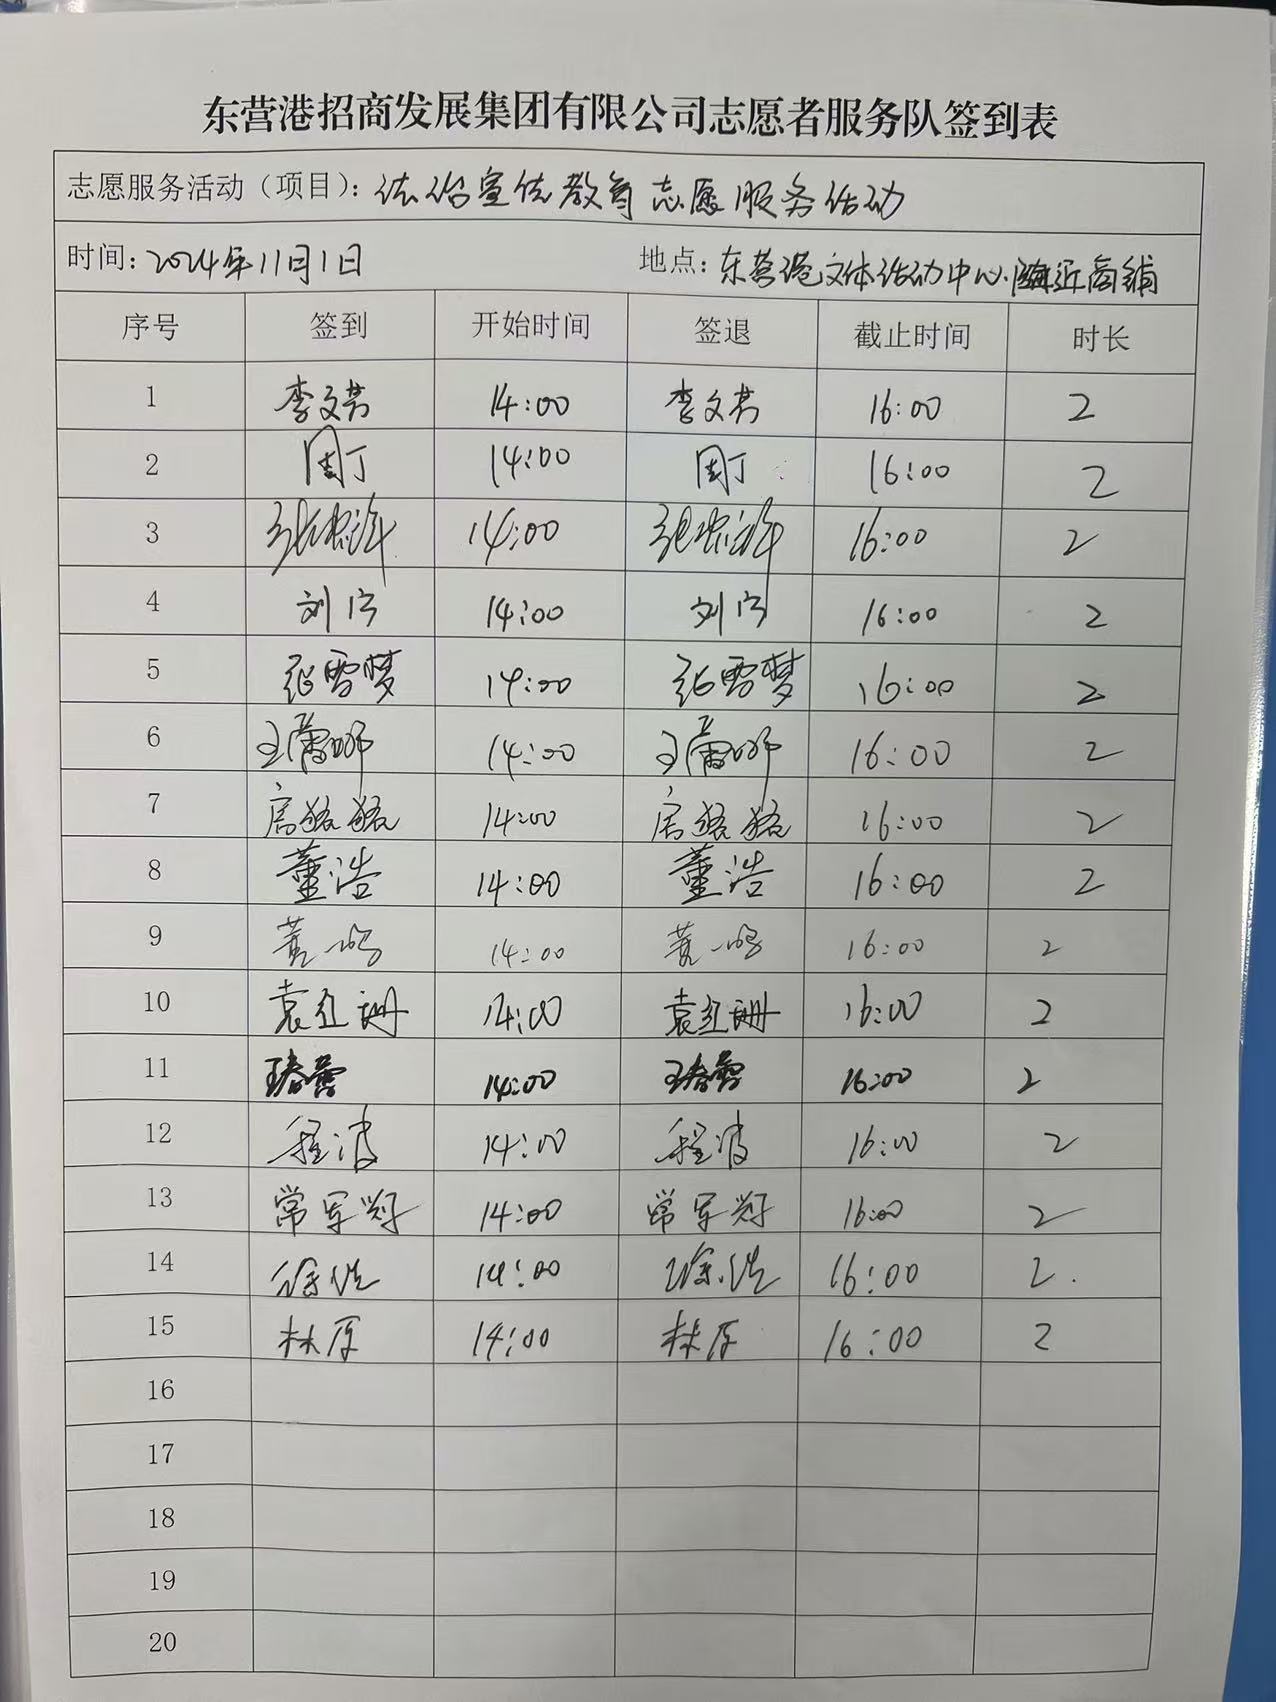 东营港招商发展集团有限公司志愿者服务队签到表
志愿服务活动（项目）：法治宣传教育志愿服务活动
时间：2024年11月1日 地点：东营港文体活动中心附近商铺
序号 签到 开始时间 签退 截止时间 时长
1 李文芳 14:00 李文芳 16:00 2
2 周丁 14:00 周丁 16:00 2
3 14:00 16:00 2
4 刘 14:00 刘 16:00 2
5 张雪梦 14:00 张雪梦 16:00 2
6 王 14:00 王 16:00 2
7 14:00 16:00 2
8 董浩 14:00 董浩 16:00 2
9 黄一鸣 14:00 黄一鸣 16:00 2
10 袁红珊 14:00 袁红珊 16:00 2
11 王春蕾 14:00 王春蕾 16:00 2
12 程波 14:00 程波 16:00 2
13 常军 14:00 常军 16:00 2
14 徐 14:00 徐 16:00 2.
15 林厚 14:00 林厚 16:00 2
16
17
18
19
20